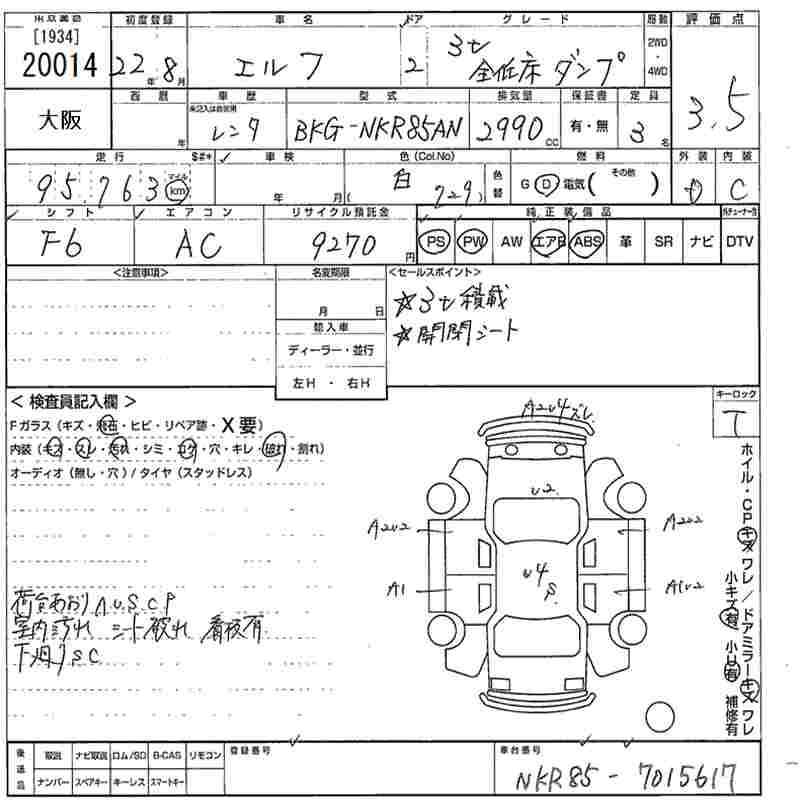 [1934]
20014
初度登録
車名
ドア
グレード
駆動
評価点
22年8月
エルフ
2
3t
全低床ダンプ
2WD
・
4WD
3.5
大阪
西暦
車歴
型式
排気量
保証書
定員
年
未記入は自家用
レンタ
BKG-NKR85AN
2990cc
有・無
3名
走行
$#*
車検
色(Col.No)
燃料
外装
内装
95,763
マイル
km
年 月
白
(729)
色替
G D 電気( その他 )
C
シフト
エアコン
リサイクル預託金
純正装備品
F6
AC
9270円
PS PW AW エアB ABS 革 SR ナビ DTV
<注意事項>
名変期限
<セールスポイント>
月 日
☆3t積載
☆開閉シート
輸入車
ディーラー・並行
左H・右H
<検査員記入欄>
キーロック
Fガラス(キズ・飛石・ヒビ・リペア跡・X要)
内装(キズ・スレ・汚れ・シミ・コゲ・穴・キレ・破れ・割れ)
オーディオ(無し・穴)/タイヤ(スタッドレス)
A2U4ズレ
U2
A2U2
A2U2
U4
S
A1
A1U2
ホイル・CPキズワレ/ドアミラーキズワレ
小キズ有 小U有 補修有
荷台あおりAUSCP
室内汚れ シート破れ 看板有
下廻りSC
後送品
取説 ナビ取説 ロム/SD B-CAS リモコン
ナンバー スペアキー キーレス スマートキー
登録番号
車台番号
NKR85-7015617